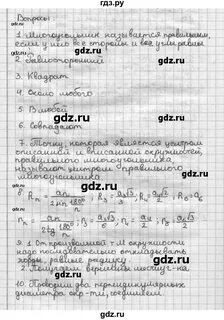 gdz.ru
Вопросы:
1. Многоугольник называется правильным,
если у него все стороны и все углы равны.
2. Равносторонний
3. Квадрат
4. Около любого
5. В любой
6. Совпадают
7. Точку, которая является центром
описанной и вписанной окружностей,
правильного многоугольника,
называют центром правильного
многоугольника.
8. Rₙ = aₙ / 2 sin 180°/n; R₃ = a√3/3; R₄ = a√2/2; R₆ = a
rₙ = aₙ / 2 tg 180°/n; r₃ = a√3/6; r₄ = a/2; r₆ = a√3/2
9. 1. От произвольной т. М окружности
надо последовательно откладывать
хорды, равные радиусу
2. вершины
10. Проводим два перпендикулярных
диаметра окр-ти, соединяем.
gdz.ru